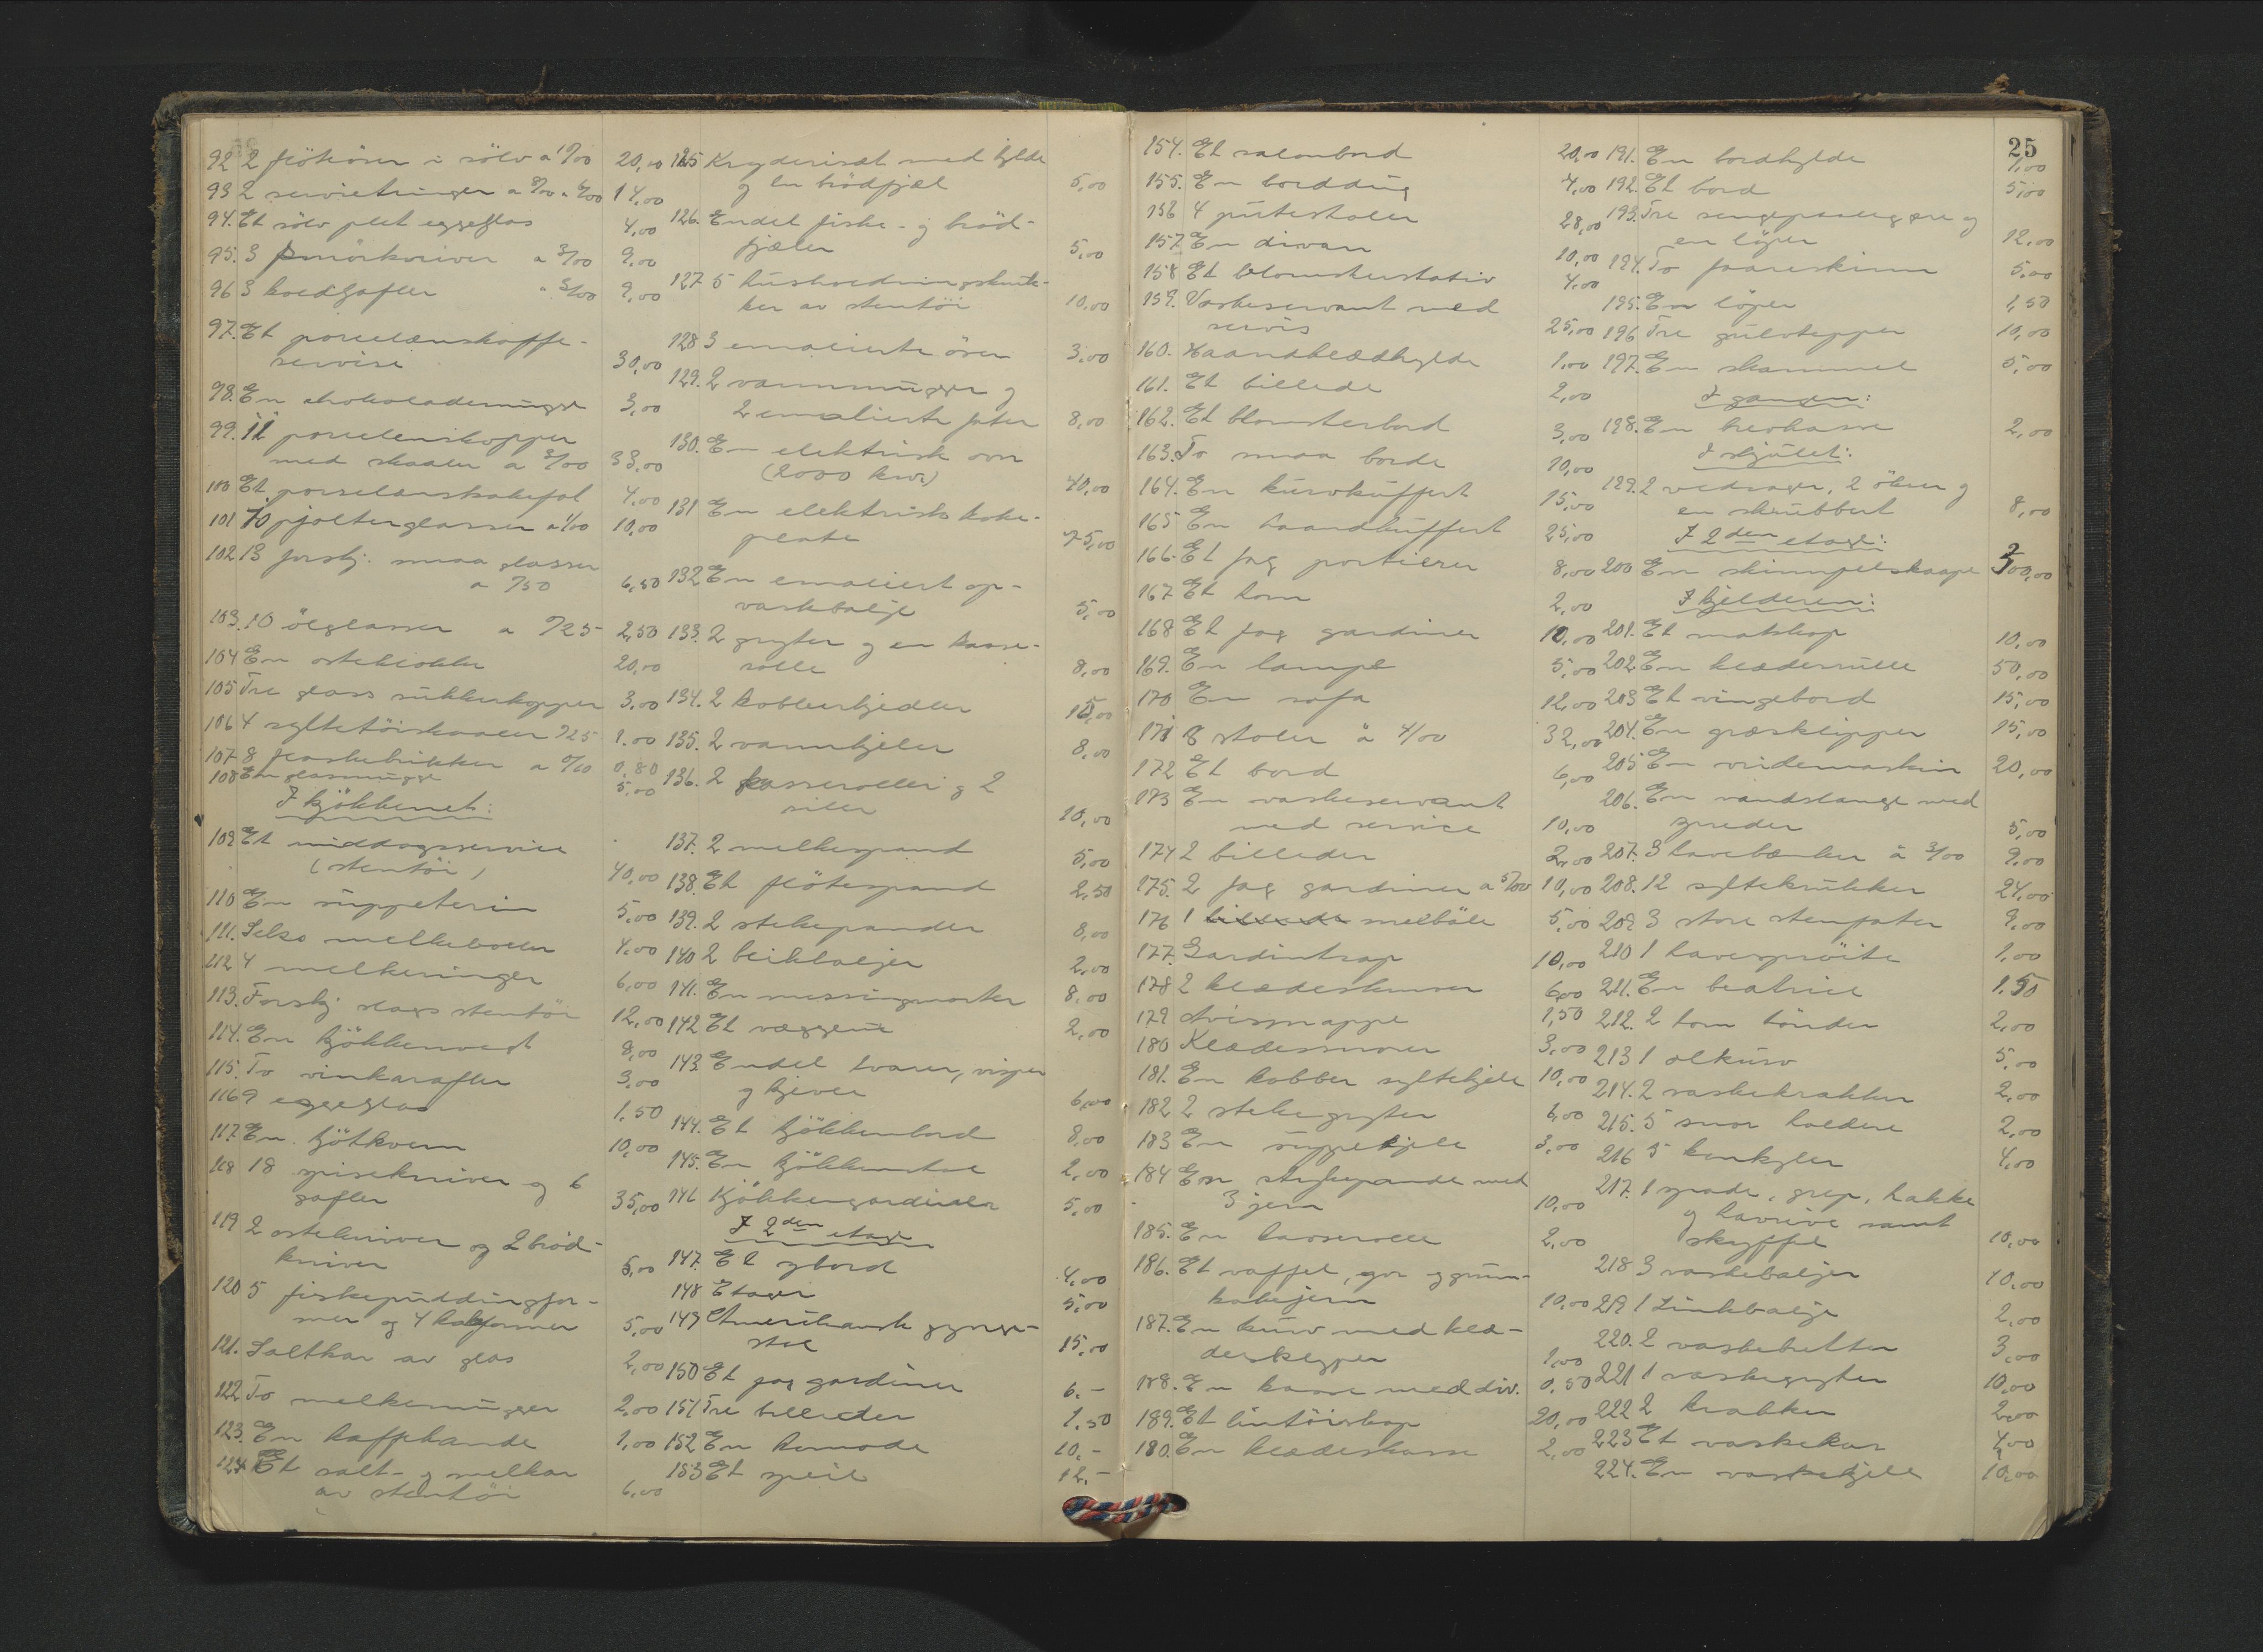 92 2 flötöser i sölv a 10/00 20,00
93 2 servietringer a 8/00 a 6/00 14,00
94. Et sölv plet eggeglas 4,00
95. 3 smörkniver a 3/00 9,00
96 3 koldgafler a 3/00 9,00
97. Et porcelænskaffe-
servise 30,00
98. En chokolademugge 3,00
99. 11 porcelenskopper
med skaaler a 3/00 33,00
100 Et porselænskakefat 4,00
101 10 pjolterglasser a 1/00 10,00
102 13 forskj. smaa glasser
a 0/50 6,50
103. 10 ölglasser a 0/25 2,50
104 En osteklokke 20,00
105 Tre glass sukkerkopper 3,00
106 4 syltetöiskaaler 0/25 1.00
107 8 flaskebrikker a 0/10 0,80
108 En glasmugge 5,00
I kjökkenet:
109 Et middagsservice
(stentöi) 40,00
110 En suppeterin 5,00
111. Seks melkeboller 4,00
112 4 melkeringer 6,00
113. Forskj. slags stentöi 12,00
114. En kjökkenvegt 8,00
115. To vinkarafler 3,00
116 9 eggeglas 1.50
117. En kjötkvern 10,00
118 18 spisekniver og 6
gafler 35,00
119 2 ostekniver og 2 bröd-
kniver 5,00
120 5 fiskepuddingfor-
mer og 4 kakeformer 5,00
121. Saltkar av glas 2,00
122 To melkemugger 2,00
123. En kaffekande 1,00
124 Et salt- og melkar
av stentöi 6,00
125 Kryderisæt med hylde
og en brödfjæl 5,00
126. Endel fiske- og bröd-
fjæler 5,00
127 5 husholdningskruk-
ker av stentöi 10,00
128 3 emalierte öser 3,00
129. 2 vannmugger og
2 emalierte fater 8,00
130. En elektrisk ovn
(2000 kw.) 40,00
131 En elektrisk koke-
plate 75,00
132 En emaliert op-
vaskbalje 5,00
133. 2 gryter og en kasse-
rolle 8,00
134. 2 kobberkjedler 15,00
135. 2 vannkjeler 8,00
136. 2 kasseroller og 2
siler 10,00
137. 2 melkespand 5,00
138. Et flötespand 2,50
139. 2 stekepander 8,00
140 2 blikbaljer 2,00
141. En messingmorter 8,00
142 Et væggeur 2,00
143. Endel tvarer, visper
og hjever 6,00
144. Et kjökkenbord 8,00
145. En kjökkenstol 2,00
146 Kjökkengardiner 5,00
I 2den etage
147. Et sybord 4,00
148 Etager 5,00
149 Amerikansk gynge-
stol 15,00
150 Et fag gardiner 6.-
151 Tre billeder 1,50
152 En komode 10.-
153 Et speil 12.-
25
154. Et salonbord 20,00
155. En borddug 4,00
156 4 putestoler 28,00
157 En divan 10,00
158 Et blomsterstativ 4,00
159. Vaskeservant med
servis 25,00
160. Haandklædhylde 1,00
161. Et billede 2,00
162. Et blomsterbord 3,00
163. To smaa borde 10,00
164. En kurvkuffert 15,00
165 En haandkuffert 25,00
166. Et fag portierer 8,00
167 Et horn 2,00
168 Et fag gardiner 10,00
169. En lampe 5,00
170 En sofa 12,00
171 8 stoler a 4/00 32,00
172 Et bord 6,00
173 En vaskeservant
med service 10,00
174 2 billeder 2,00
175. 2 fag gardiner a 5/00 10,00
176 1 billede melböle 5,00
177. Gardintrap 10,00
178 2 klædeskurver 6,00
179 Avismappe 1,50
180 Klædessnorer 3,00
181. En kobber syltekjele 10,00
182 2 stekegryter 6,00
183 En suppekjele 3,00
184 En strykepande med
3 jern 10,00
185. En kasserolle 2,00
186. Et vaffel, gor og grim-
kakejern 10,00
187. En kurv med klæ-
desklyper 1,00
188. En kasse med div. 0,50
189. Et lintöiskap 20,00
180. En klædeskasse 2,00
191. En bordhylde 1,00
192. Et bord 5,00
193. Tre sengepaalæggere og
en löper 12,00
194. To faareskinn 5,00
195. En löper 1,50
196 Tre gulvtepper 10,00
197. En skammel 5,00
I gangen:
198. En brevkasse 2,00
I skjulet:
199. 2 vedsager, 2 ökser og
en skrubbert 8,00
I 2den etage:
200 En skinnpelskaape 200,00
I kjelderen:
201. Et matskap 10,00
202 En klæderulle 50,00
203 Et vingebord 15,00
204. En græsklipper 15,00
205 En vridemaskin 20,00
206. En vandslange med
spreder 5,00
207. 3 havebænker a 3/00 9,00
208. 12 syltekrukker 24,00
209 3 store stenfater 9,00
210 1 havespröite 1,00
211. En beatrice 1.50
212. 2 tom tönder 2,00
213 1 ølkurv 5,00
214. 2 vaskekrakker 2,00
215. 5 snor holdere 2,00
216 5 konkyler 4,00
217. 1 spade, grep, hakke
og havrive samt
skyffel 10,00
218 3 vaskebaljer 10,00
219 1 Zinkbalje 2,00
220. 2 vaskebøtter 3,00
221 1 vaskegryter 10,00
222 2 krakker 2,00
223 Et vaskekar 4,00
224. En vaskekjele 10,00